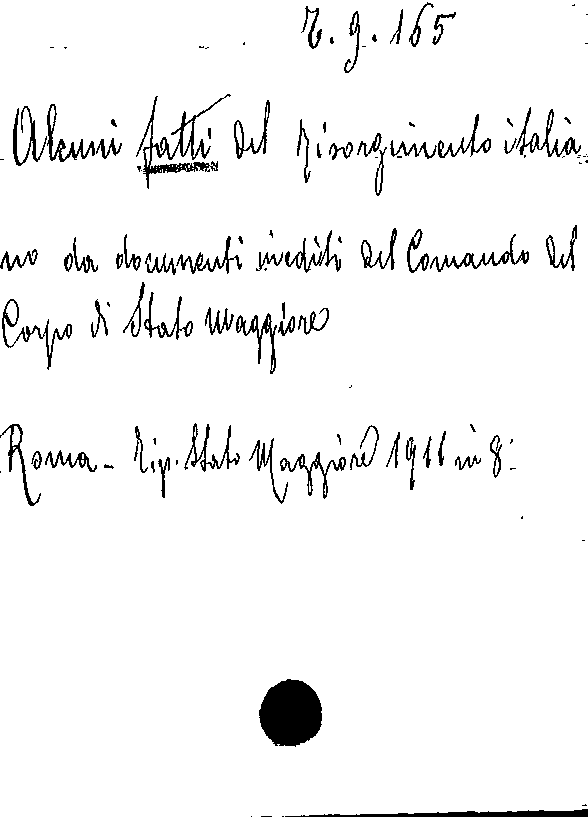 Z. g. 165
Alcuni fatti del risorgimento italia
no da documenti inediti del Comando del
Corpo di Stato Maggiore
Roma - Tip. Stato Maggiore 1911 in 8: